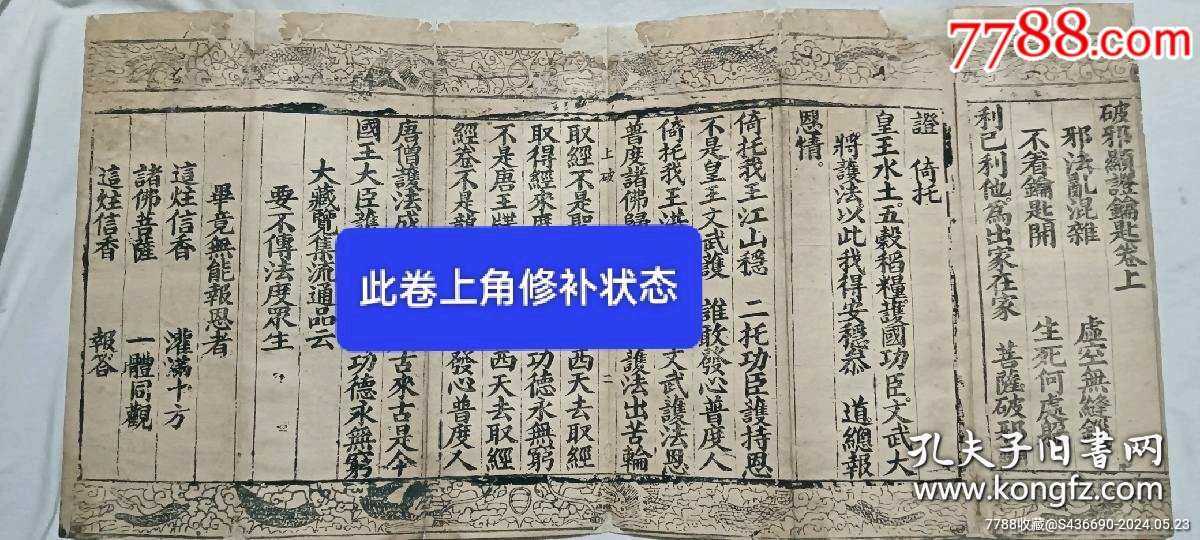 破邪顯證鑰匙卷上
邪法亂混雜 虛空無縫鎖
不着鑰匙開 生死何處
利己利他。為出家在家 菩薩破邪
證 倚托
皇王水土。五穀稻糧護國功臣。文武大
將護法。以此我得安穩叅 道總報
恩情。
倚托我王江山穩 二托功臣護持恩
不是皇王文武護 誰敢發心普度人
倚托我王洪 文武護法恩
普度諸佛歸 護法出苦輪
上破 二
取經不是聖 西天去取經
取得經來度 功德永無窮
不是唐王牒 西天去取經
經卷不是龍 發心普度人
唐僧護法成 古來古是今
國王大臣護 功德永無窮
大藏覽集流通品云
要不傳法度眾生
畢竟無能報恩者
這炷信香 灌滿十方
諸佛菩薩 一體同觀
這炷信香 報答
此卷上角修补状态
7788.com
孔夫子旧书网
www.kongfz.com
7788收藏@S436690-2024.05.23